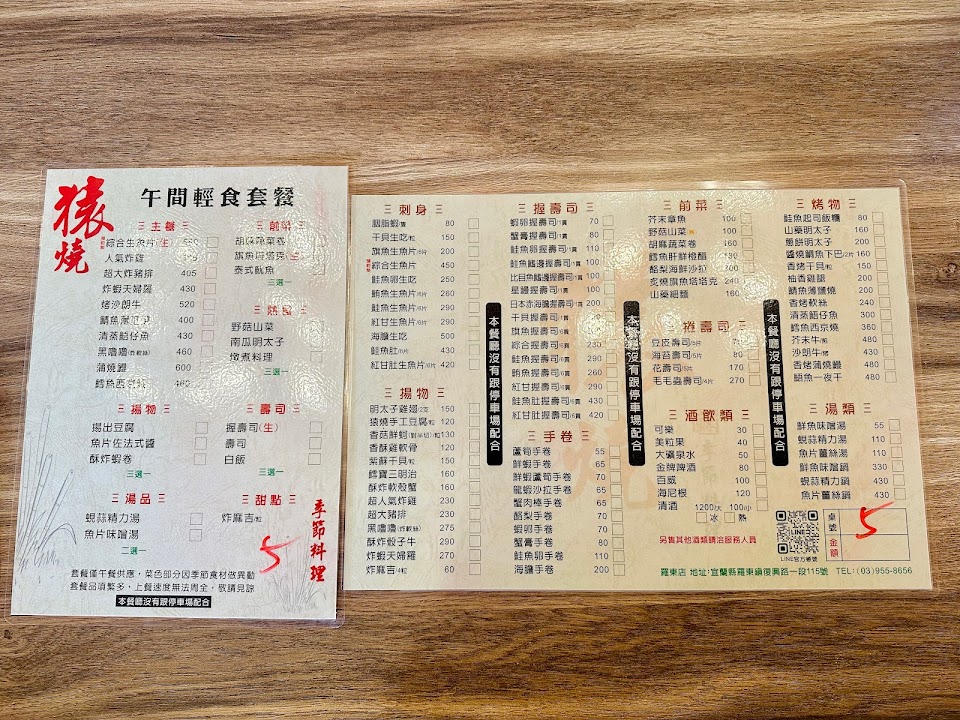 猿燒
午間輕食套餐
三 主餐 三
綜合生魚片(生)
人氣炸雞
超大炸豬排 405
炸蝦天婦羅 430
烤沙朗牛 520
鯖魚 400
清蒸鋁仔魚 430
黑嚕嚕(炸軟絲) 460
蒲燒鰻 600
鱈魚西京燒 460
三 前菜 三
胡麻蔬菜卷
旗魚塔塔克(生)
泰式魷魚
三選一
三 熱食 三
野菇山菜
南瓜明太子
燉煮料理
三選一
三 揚物 三
揚出豆腐
魚片佐法式醬
酥炸蝦卷
三選一
三 壽司 三
握壽司(生)
壽司
白飯
三選一
三 湯品 三
蜆蒜精力湯
魚片味噌湯
二選一
三 甜點 三
炸麻吉/粒
季節料理
5
套餐僅午餐供應，菜色部分因季節食材做異動
套餐品項繁多，上餐速度無法周全，敬請見諒
本餐廳沒有跟停車場配合
三 刺身 三
胭脂蝦/隻 80
干貝生吃/粒 150
旗魚生魚片/5片 200
綜合生魚片 450
鮭魚卵生吃 250
鮪魚生魚片/5片 260
鮭魚生魚片/5片 290
紅甘生魚片/5片 290
海膽生吃 200
鮭魚肚/5片 430
紅甘魚肚/5片 420
三 揚物 三
明太子雞翅/2支 150
猿燒手工豆腐/粒 120
香菇鮮蚵(對半切)/粒 130
香酥雞軟骨 120
紫蘇干貝/粒 150
鱈寶三明治 160
酥炸軟殼蟹 160
超人氣炸雞 230
超大豬排 230
黑嚕嚕(炸軟絲) 275
酥炸骰子牛 290
炸蝦天婦羅 270
炸麻吉/4粒 60
三 握壽司 三
蝦卵握壽司/1貫 70
蟹膏握壽司/1貫 80
鮭魚卵握壽司/1貫
鮭魚鰭邊握壽司/1貫
比目魚鰭邊握壽司/1貫
星鰻握壽司/1貫
日本赤海膽握壽司/1貫
干貝握壽司/1貫
旗魚握壽司/6貫
綜合握壽司
鮭魚握壽司/6貫 290
鮪魚握壽司/6貫 260
紅甘握壽司/6貫 290
鮭魚肚握壽司/6貫 430
紅甘肚握壽司/6貫 420
三 手卷 三
蘆筍手卷 55
鮮蝦手卷 60
鮮蝦蘆筍手卷 65
龍蝦沙拉手卷 65
蟹肉棒手卷 65
酪梨手卷 70
蝦卵手卷 70
蟹膏手卷 80
鮭魚卵手卷 110
海膽手卷 200
本餐廳沒有跟停車場配合
三 前菜 三
芥末章魚 100
野菇山菜 100
胡麻蔬菜卷 160
鱈魚肝鮮橙醋 130
酪梨海鮮沙拉 200
炙燒旗魚塔塔克 240
山藥細麵 160
三 捲壽司 三
豆皮壽司/5片 70
海苔壽司/5片 80
花壽司/5片 170
毛毛蟲壽司/4片 270
三 酒飲類 三
可樂 30
美粒果 40
大礦泉水 50
金牌啤酒 80
百威 100
海尼根 120
清酒 1200/大 100/小
冰 熱
另售其他酒類請洽服務人員
本餐廳沒有跟停車場配合
三 烤物 三
鮭魚起司飯糰 80
山藥明太子 160
蔥餅明太子 200
醬燒鯛魚下巴/2片 160
香烤干貝/粒 150
柚香雞腿
鯖魚薄鹽燒 200
香烤軟絲 240
清蒸鋁仔魚 300
鱈魚西京燒 360
芥末牛/前 480
沙朗牛/前 480
香烤蒲燒鰻 480
鮞魚一夜干 480
三 湯類 三
鮮魚味噌湯 55
蜆蒜精力湯 110
魚片薑絲湯 110
鮮魚味噌鍋 330
蜆蒜精力鍋 430
魚片薑絲鍋 430
LINE
LINE官方帳號
桌號
5
金額
本餐廳沒有跟停車場配合
羅東店 地址:宜蘭縣羅東鎮復興路一段115號 TEL:(03)955-8656